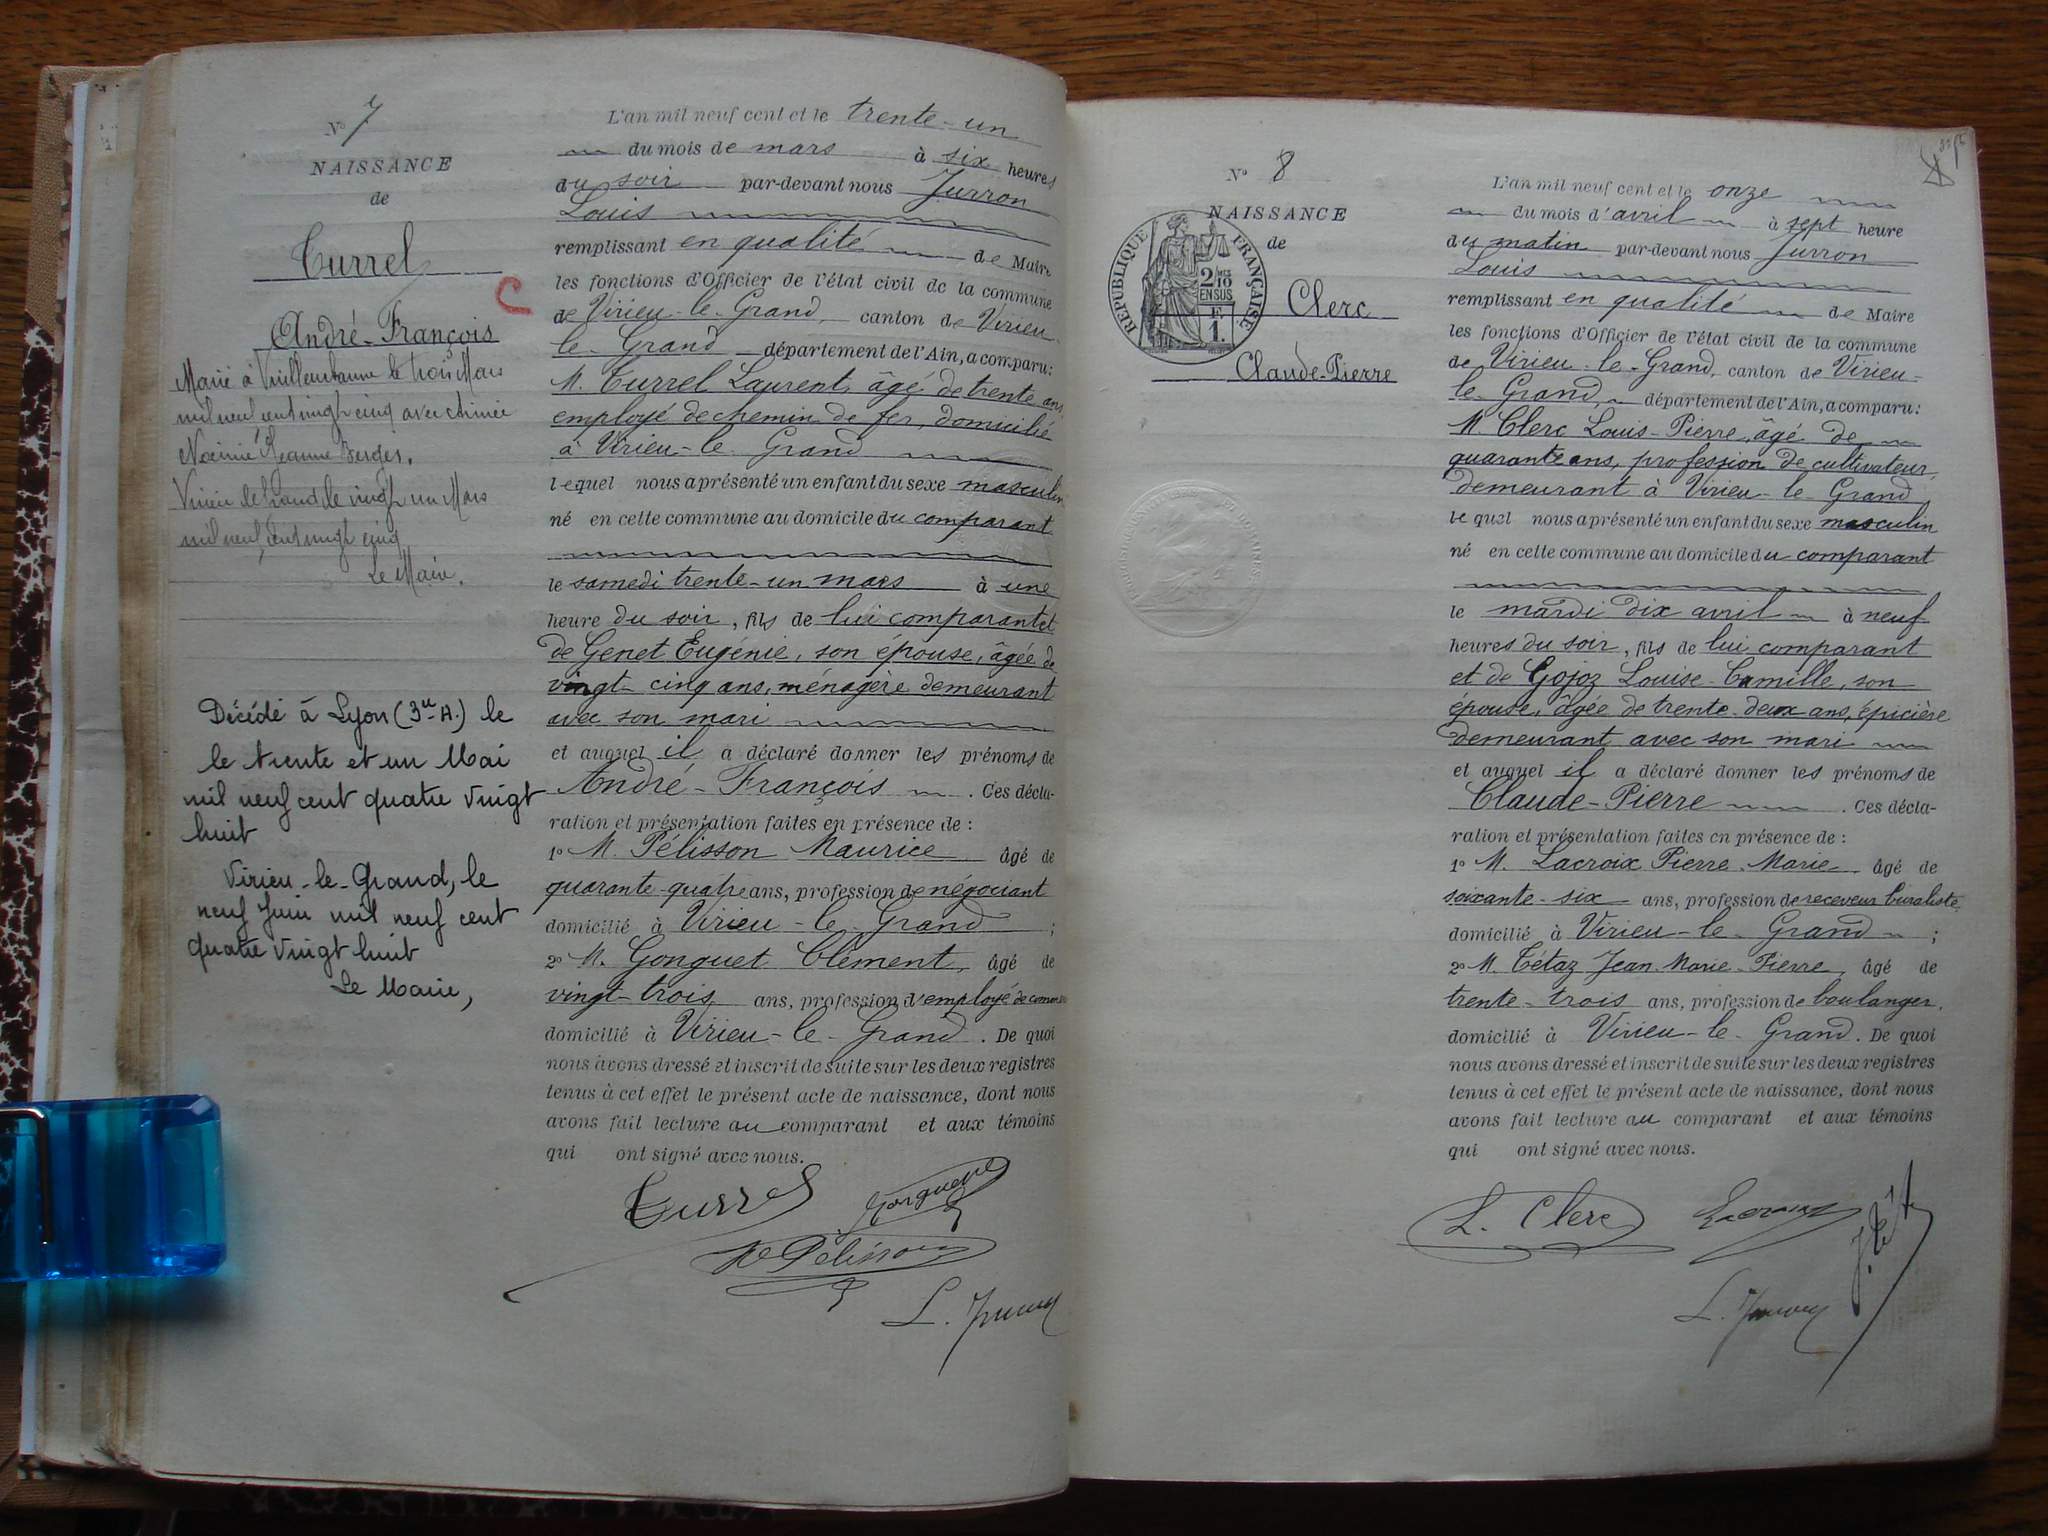 N° 7
NAISSANCE
de
Turrel
André-François
Marié à Villeurbanne le trois Mars
mil neuf cent vingt cinq avec
Noémie Jeanne Berger.
Virieu le Grand le vingt un Mars
mil neuf cent vingt cinq
Le Maire,
Décédé à Lyon (3e A.) le
le trente et un Mai
mil neuf cent quatre vingt
huit
Virieu-le-Grand, le
neuf Juin mil neuf cent
quatre vingt huit
Le Maire,
L'an mil neuf cent et le trente-un
du mois de mars à six heures
du soir par-devant nous Jurron
Louis
remplissant en qualité de Maire
les fonctions d'Officier de l'état civil de la commune
de Virieu-le-Grand, canton de Virieu-
le-Grand département de l'Ain, a comparu:
M. Turrel Laurent, âgé de trente ans,
employé de chemin de fer, domicilié
à Virieu-le-Grand
lequel nous a présenté un enfant du sexe masculin
né en cette commune au domicile du comparant
le samedi trente-un mars à une
heure du soir, fils de lui comparant et
de Genet Eugénie, son épouse, âgée de
vingt-cinq ans, ménagère demeurant
avec son mari
et auquel il a déclaré donner les prénoms de
André-François. Ces décla-
ration et présentation faites en présence de :
1° M. Pélisson Maurice âgé de
quarante-quatre ans, profession de négociant
domicilié à Virieu-le-Grand ;
2° M. Gonguet Clément, âgé de
vingt-trois ans, profession d'employé de commerce
domicilié à Virieu-le-Grand. De quoi
nous avons dressé et inscrit de suite sur les deux registres
tenus à cet effet le présent acte de naissance, dont nous
avons fait lecture au comparant et aux témoins
qui ont signé avec nous.
Turrel Gonguet
Pélisson
L. Jurron
N° 8
NAISSANCE
de
RÉPUBLIQUE FRANÇAISE
2/10
EN SUS
1 F.
Clerc
Claude-Pierre
L'an mil neuf cent et le onze
du mois d'avril à sept heure
du matin par-devant nous Jurron
Louis
remplissant en qualité de Maire
les fonctions d'Officier de l'état civil de la commune
de Virieu-le-Grand, canton de Virieu-
le-Grand, département de l'Ain, a comparu:
M. Clerc Louis-Pierre, âgé de
quarante ans, profession de cultivateur,
demeurant à Virieu-le-Grand
lequel nous a présenté un enfant du sexe masculin
né en cette commune au domicile du comparant
le mardi dix avril à neuf
heures du soir, fils de lui comparant
et de Gojoz Louise-Camille, son
épouse, âgée de trente-deux ans, épicière
demeurant avec son mari
et auquel il a déclaré donner les prénoms de
Claude-Pierre. Ces décla-
ration et présentation faites en présence de :
1° M. Lacroix Pierre-Marie âgé de
soixante-six ans, profession de receveur buraliste,
domicilié à Virieu-le-Grand ;
2° M. Tétaz Jean-Marie-Pierre, âgé de
trente-trois ans, profession de boulanger,
domicilié à Virieu-le-Grand. De quoi
nous avons dressé et inscrit de suite sur les deux registres
tenus à cet effet le présent acte de naissance, dont nous
avons fait lecture au comparant et aux témoins
qui ont signé avec nous.
L. Clerc Lacroix
L. Jurron